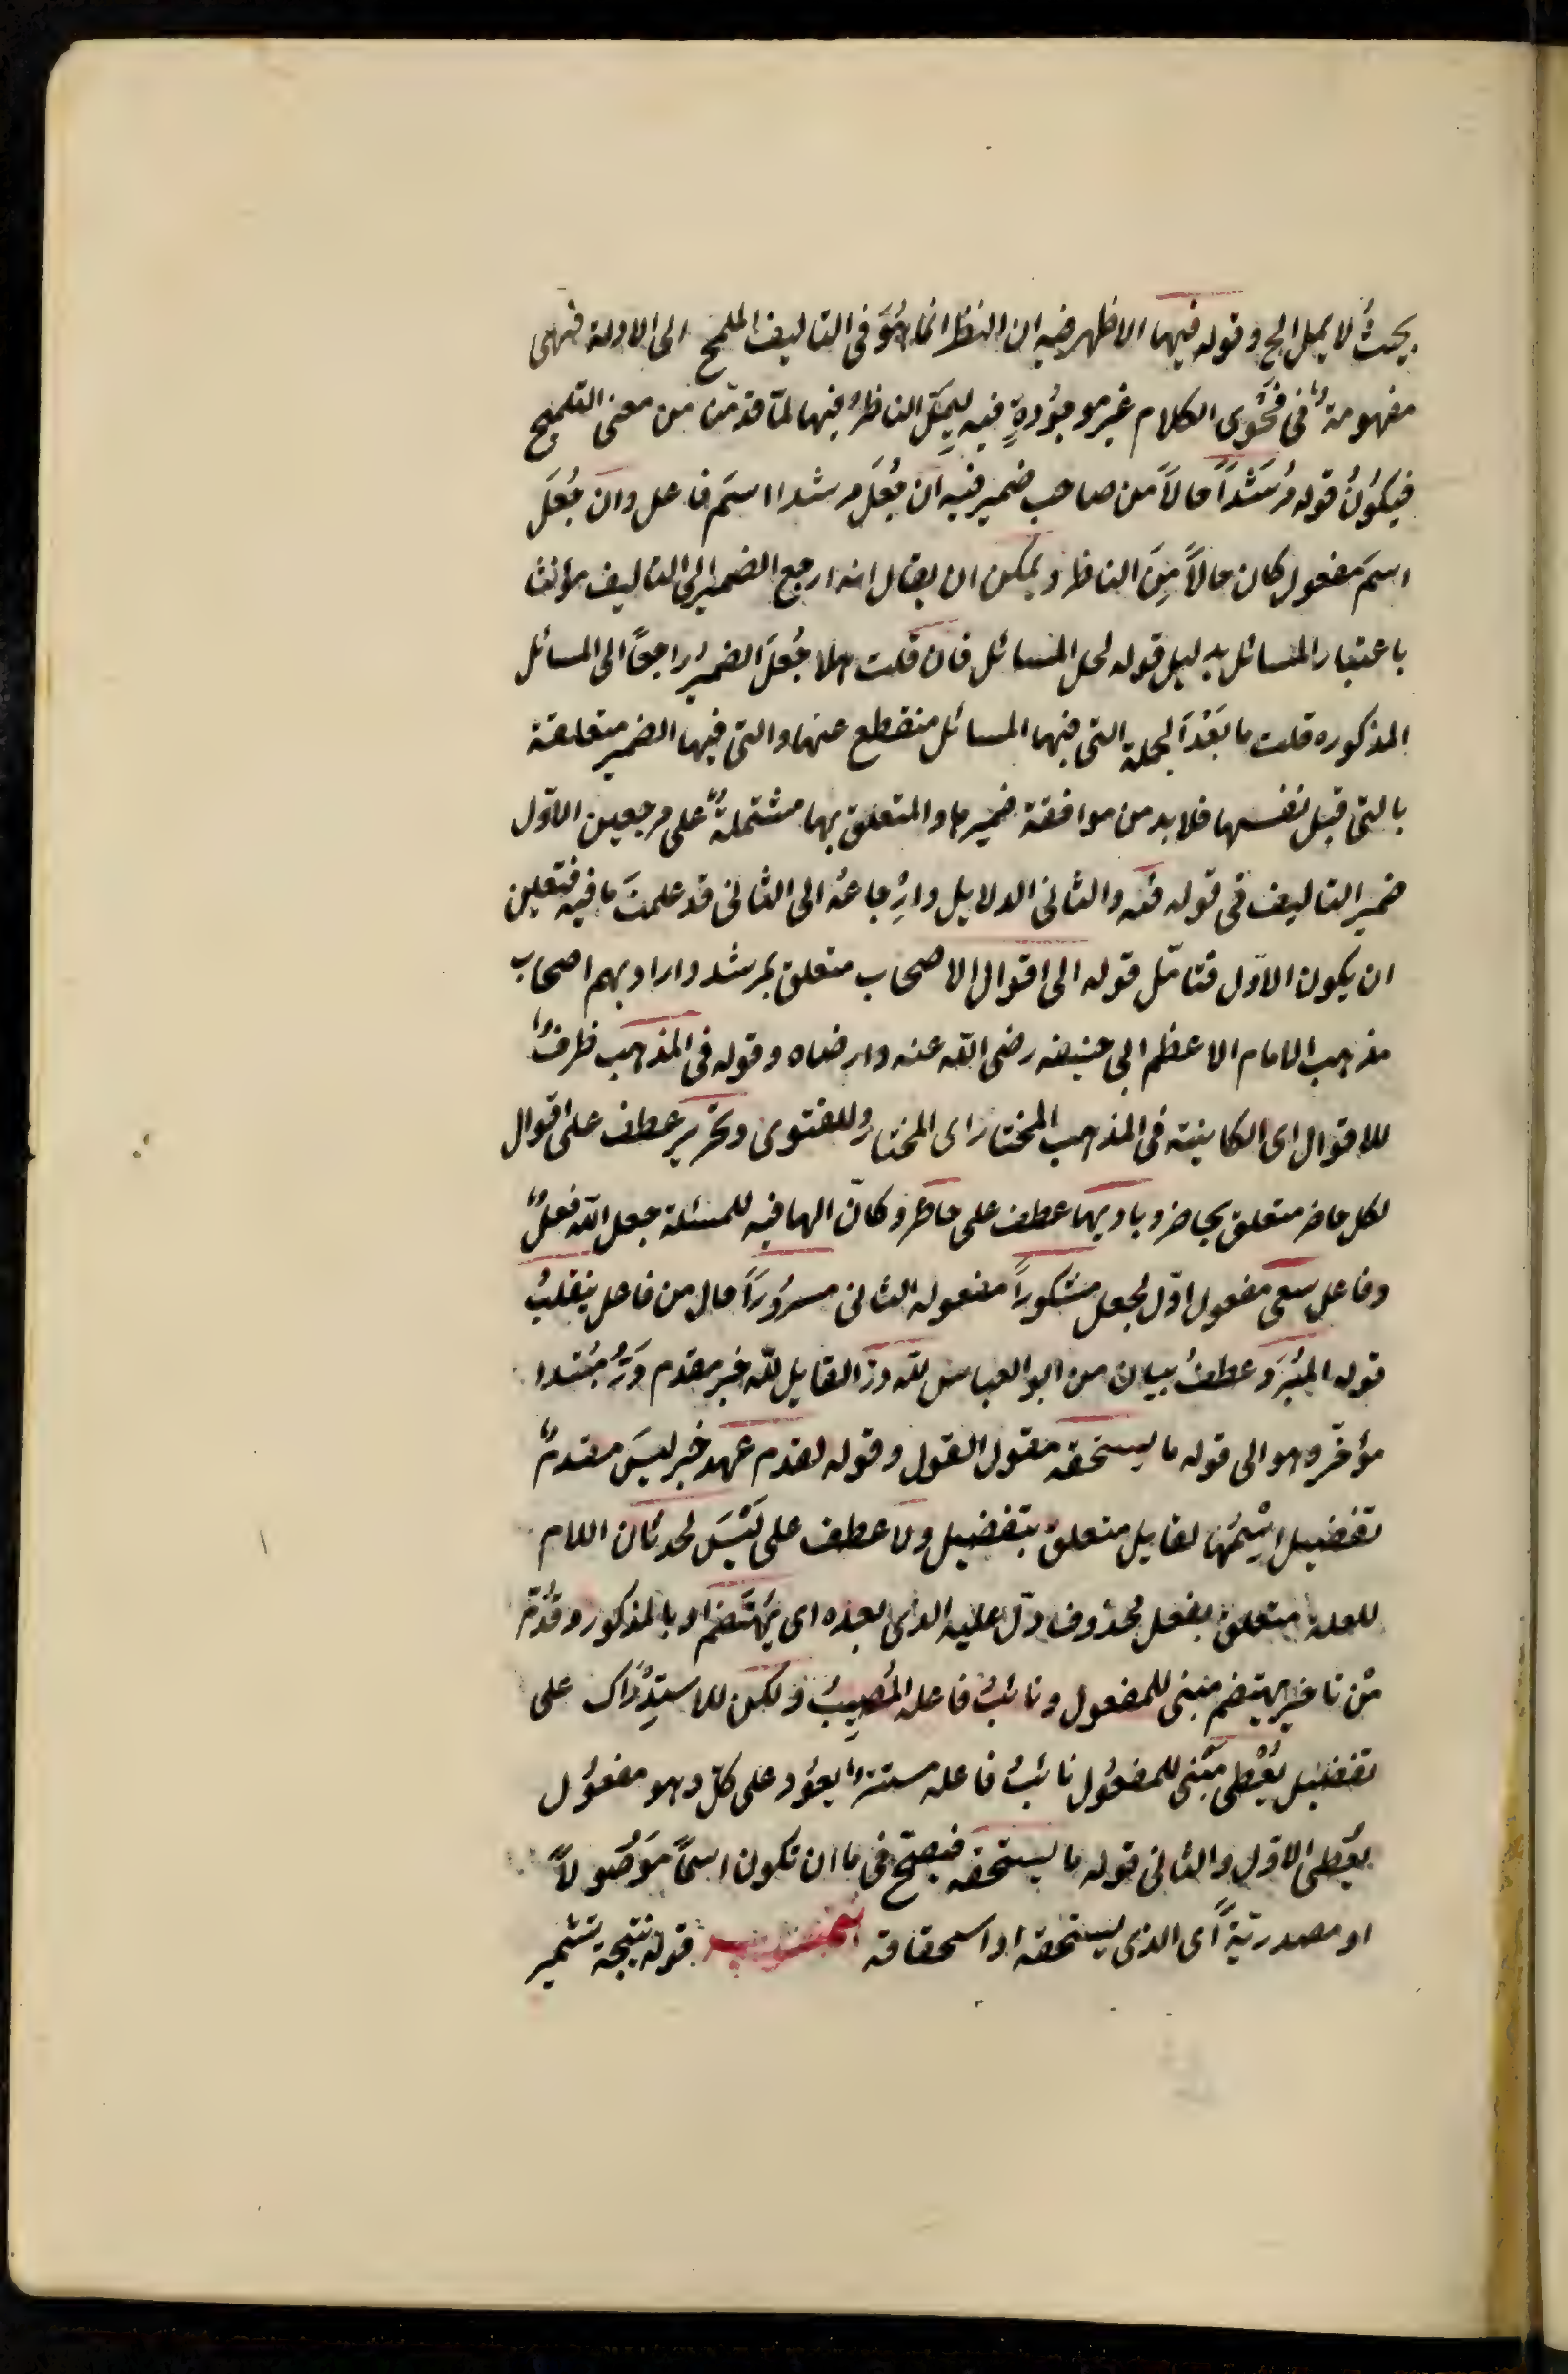 بحيث لا يمل الخ وقوله فيها الاظهر فيه ان النظر انما هُوَ فى التاليف الملمح الى الادلة فهى
مفهومةٌ فى فَحْوى الكلام غير موجُودةٍ فيه ليمكن الناظرُ فيها لما قدمنا من معنى التلميح
فيكُونُ قوله مُرشَداً حالاً من صاحب ضمير فيه ان جُعلَ مرشدا اسمَ فاعل وان جُعلَ
اسمَ مفعول كان حالاً مِنَ الناظر ويمكن ان يقال انه ارجع الضمير الى التاليف مؤنثا
باعتبار المسائل بدليل قوله لحل المسائل فان قلت هلا جُعلَ الضميرُ راجعاً الى المسائل
المذكوره قلت ما بَعْدَ الجملة التى فيها المسائل منقطع عنها والتى فيها الضمير متعلقة
بالتى قبل نفسها فلا بد من موافقة ضميرها والمتعلق بها مشتملةٌ على مرجعين الاوّل
ضمير التاليف فى قوله فيه والثانى الدلايل وارْجاعه الى الثانى قد علمتَ ما فيه فتعين
ان يكون الاوّل فتامّل قوله الى اقوال الاصحاب متعلق بمرشد واراد بهم اصحاب
مذهب الامام الاعظم ابى حنيفه رضى الله عنه وارضاه وقوله فى المذهب ظرفٌ
للاقوال اى الكاينة فى المذهب المختار اى المختار للفتوى وتحرير عطف على اقوال
لكل حاضر متعلق بحاضر وباديها عطف على حاظر وكانّ الها فيه للمسئلة جعل الله فعلٌ
وفاعل سعى مفعول اوّل لجعل مشكوراً مفعوله الثانى مسرُوراً حال من فاعل ينقلبُ
قوله المُبَرّد عطفُ بيان من ابو العباس لله درّ القايل لله خبر مقدم ودَرُّ مُبتدا
مؤخّر وهو الى قوله ما يستحقه مقول القول وقوله لقدم عهد خبر ليسَ مقدمٌ
تفضيل اسْمُها لقايل متعلق بتفضيل ولا عطف على لَيْسَ لحدثان اللام
للعلة متعلق بفعل محذوف دلّ عليه الذى بعده اى يُهتَضم او بالمذكور وقُدّم
مْن تاخير يهتضم مبنى للمفعول ونائبُ فاعله المُصِيبُ ولكن للاستِدْرَاك على
تفضيل يُعْطى مبْنى للمفعُول نائبُ فاعله مستترٌ يعوُد على كلّ وهو مفعوُل
يعُطى الاوّل والثانى قوله ما يستحقه فيصحّ فى ما ان تكون اسماً مَوصُولاً
او مصدريّةً اى الذى يستحقه او استحقاقه قوله نتيجة تشمير